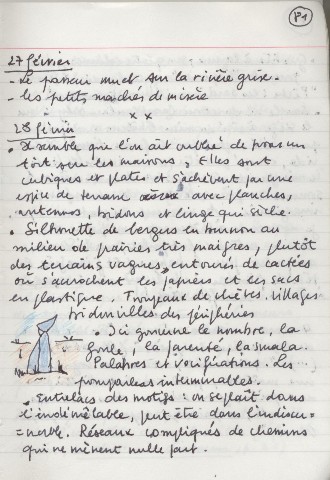 P1
27 février
- Le passeur muet sur la rivière grise.
- les petits marchés de misère
x x
28 février
• Il semble que l'on ait oublié de poser un
toit sur les maisons, Elles sont
cubiques et plates et s'achèvent par une
espèce de terrasse avec planches,
antennes, bidons et linge qui sèche.
• Silhouette de bergers en burnou au
milieu de prairies très maigres, plutôt
des terrains vagues, entourés de cactées
où s'accrochent les papiers et les sacs
en plastique. Troupeaux de chèvres. villages
bidonvilles des périphéries
• Ici domine le nombre, la
foule, la parenté, la smala.
Palabres et vociférations. Les
pourparlers interminables.
• Entrelacs des motifs : on se plaît dans
l'indémêlable, peut être dans l'indiscu-
= Réseaux compliqués de chemins
qui ne mènent nulle part.